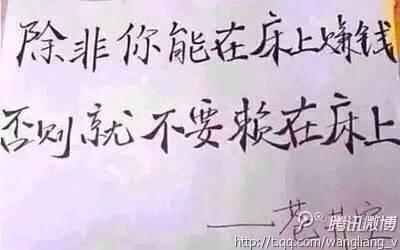 除非你能在床上赚钱
否则就不要赖在床上
腾讯微博
http://t.qq.com/wangliang_v